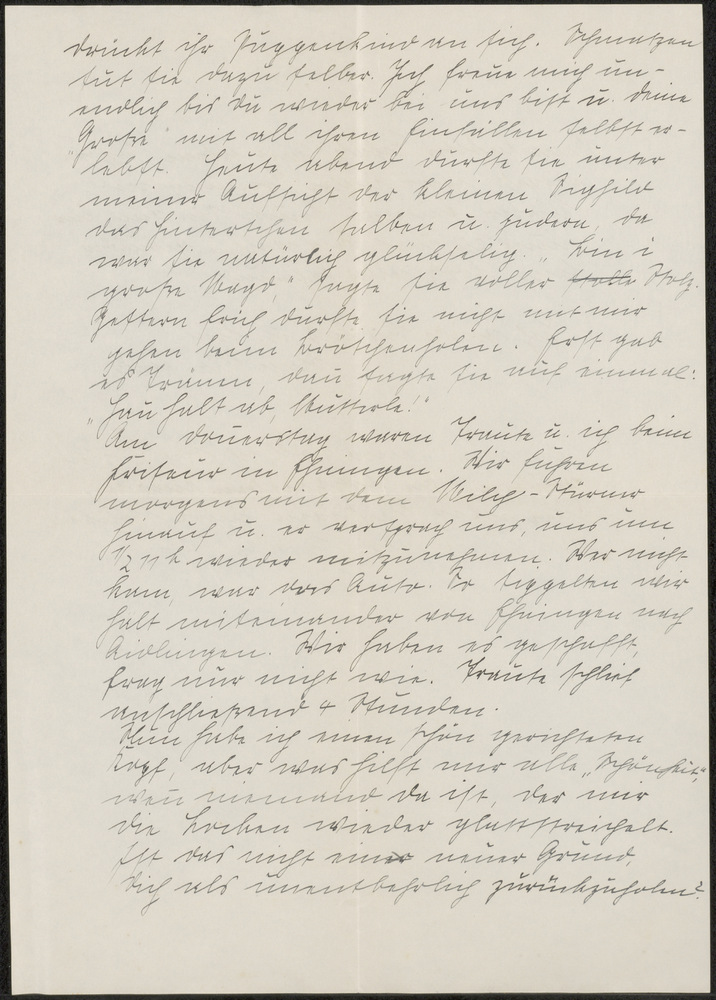 drückt ihr Puppenkind an sich. Schmatzen
tut sie dazu selber. Ich freue mich un-
endlich bis Du wieder bei uns bist u. deine
"Große" mit all ihren Einfällen selbst er-
lebst. Heute abend durfte sie unter
meiner Aufsicht der kleinen Sighild
das Hinterchen salben u. pudern, da
war sie natürlich glückselig. "Bin i
große Magd," sagte sie voller Stolz.
Gestern früh durfte sie nicht mit mir
gehen beim Brötchenholen. Erst gab
es Tränen, dan sagte sie auf einmal:
"Hau halt ab, Mutterle!"
Am Donerstag waren Traute u. ich beim
Friseur in Ehningen. Wir fuhren
morgens mit dem Milch-Stürmer
hinauf u. er versprach uns, uns um
½ 11 h wieder mitzunehmen. Wer nicht
kam, war das Auto. So tippelten wir
halt miteinander von Ehningen nach
Aidlingen. Wir haben es geschafft,
frag nur nicht wie. Traute schlief
anschließend 4 Stunden.
Nun habe ich einen schön gerichteten
Kopf, aber was hilft mir alle "Schönheit",
wen niemand da ist, der mir
die Locken wieder glattstreichelt.
Ist das nicht ein neuer Grund,
Dich als unentbehrlich zurückzuholen?